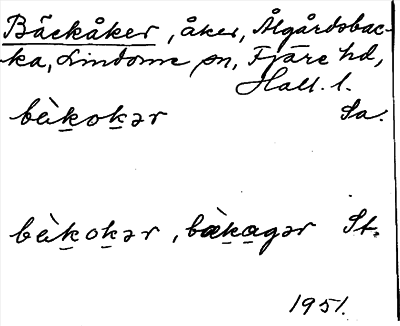 Bäckåker, åker, Ålgårdsbac-
ka, Lindome sn, Fjäre hd,
Hall. l.
bὰkokər Sa.
bὰkokər, bækagər St.
1951.